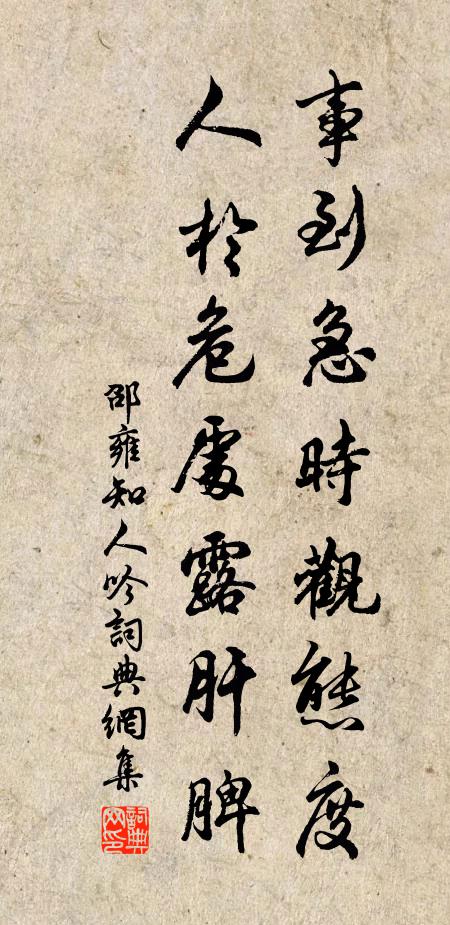 事到急時觀態度
人於危處露肝脾
邵雍知人吟詞典網集
詞典網印